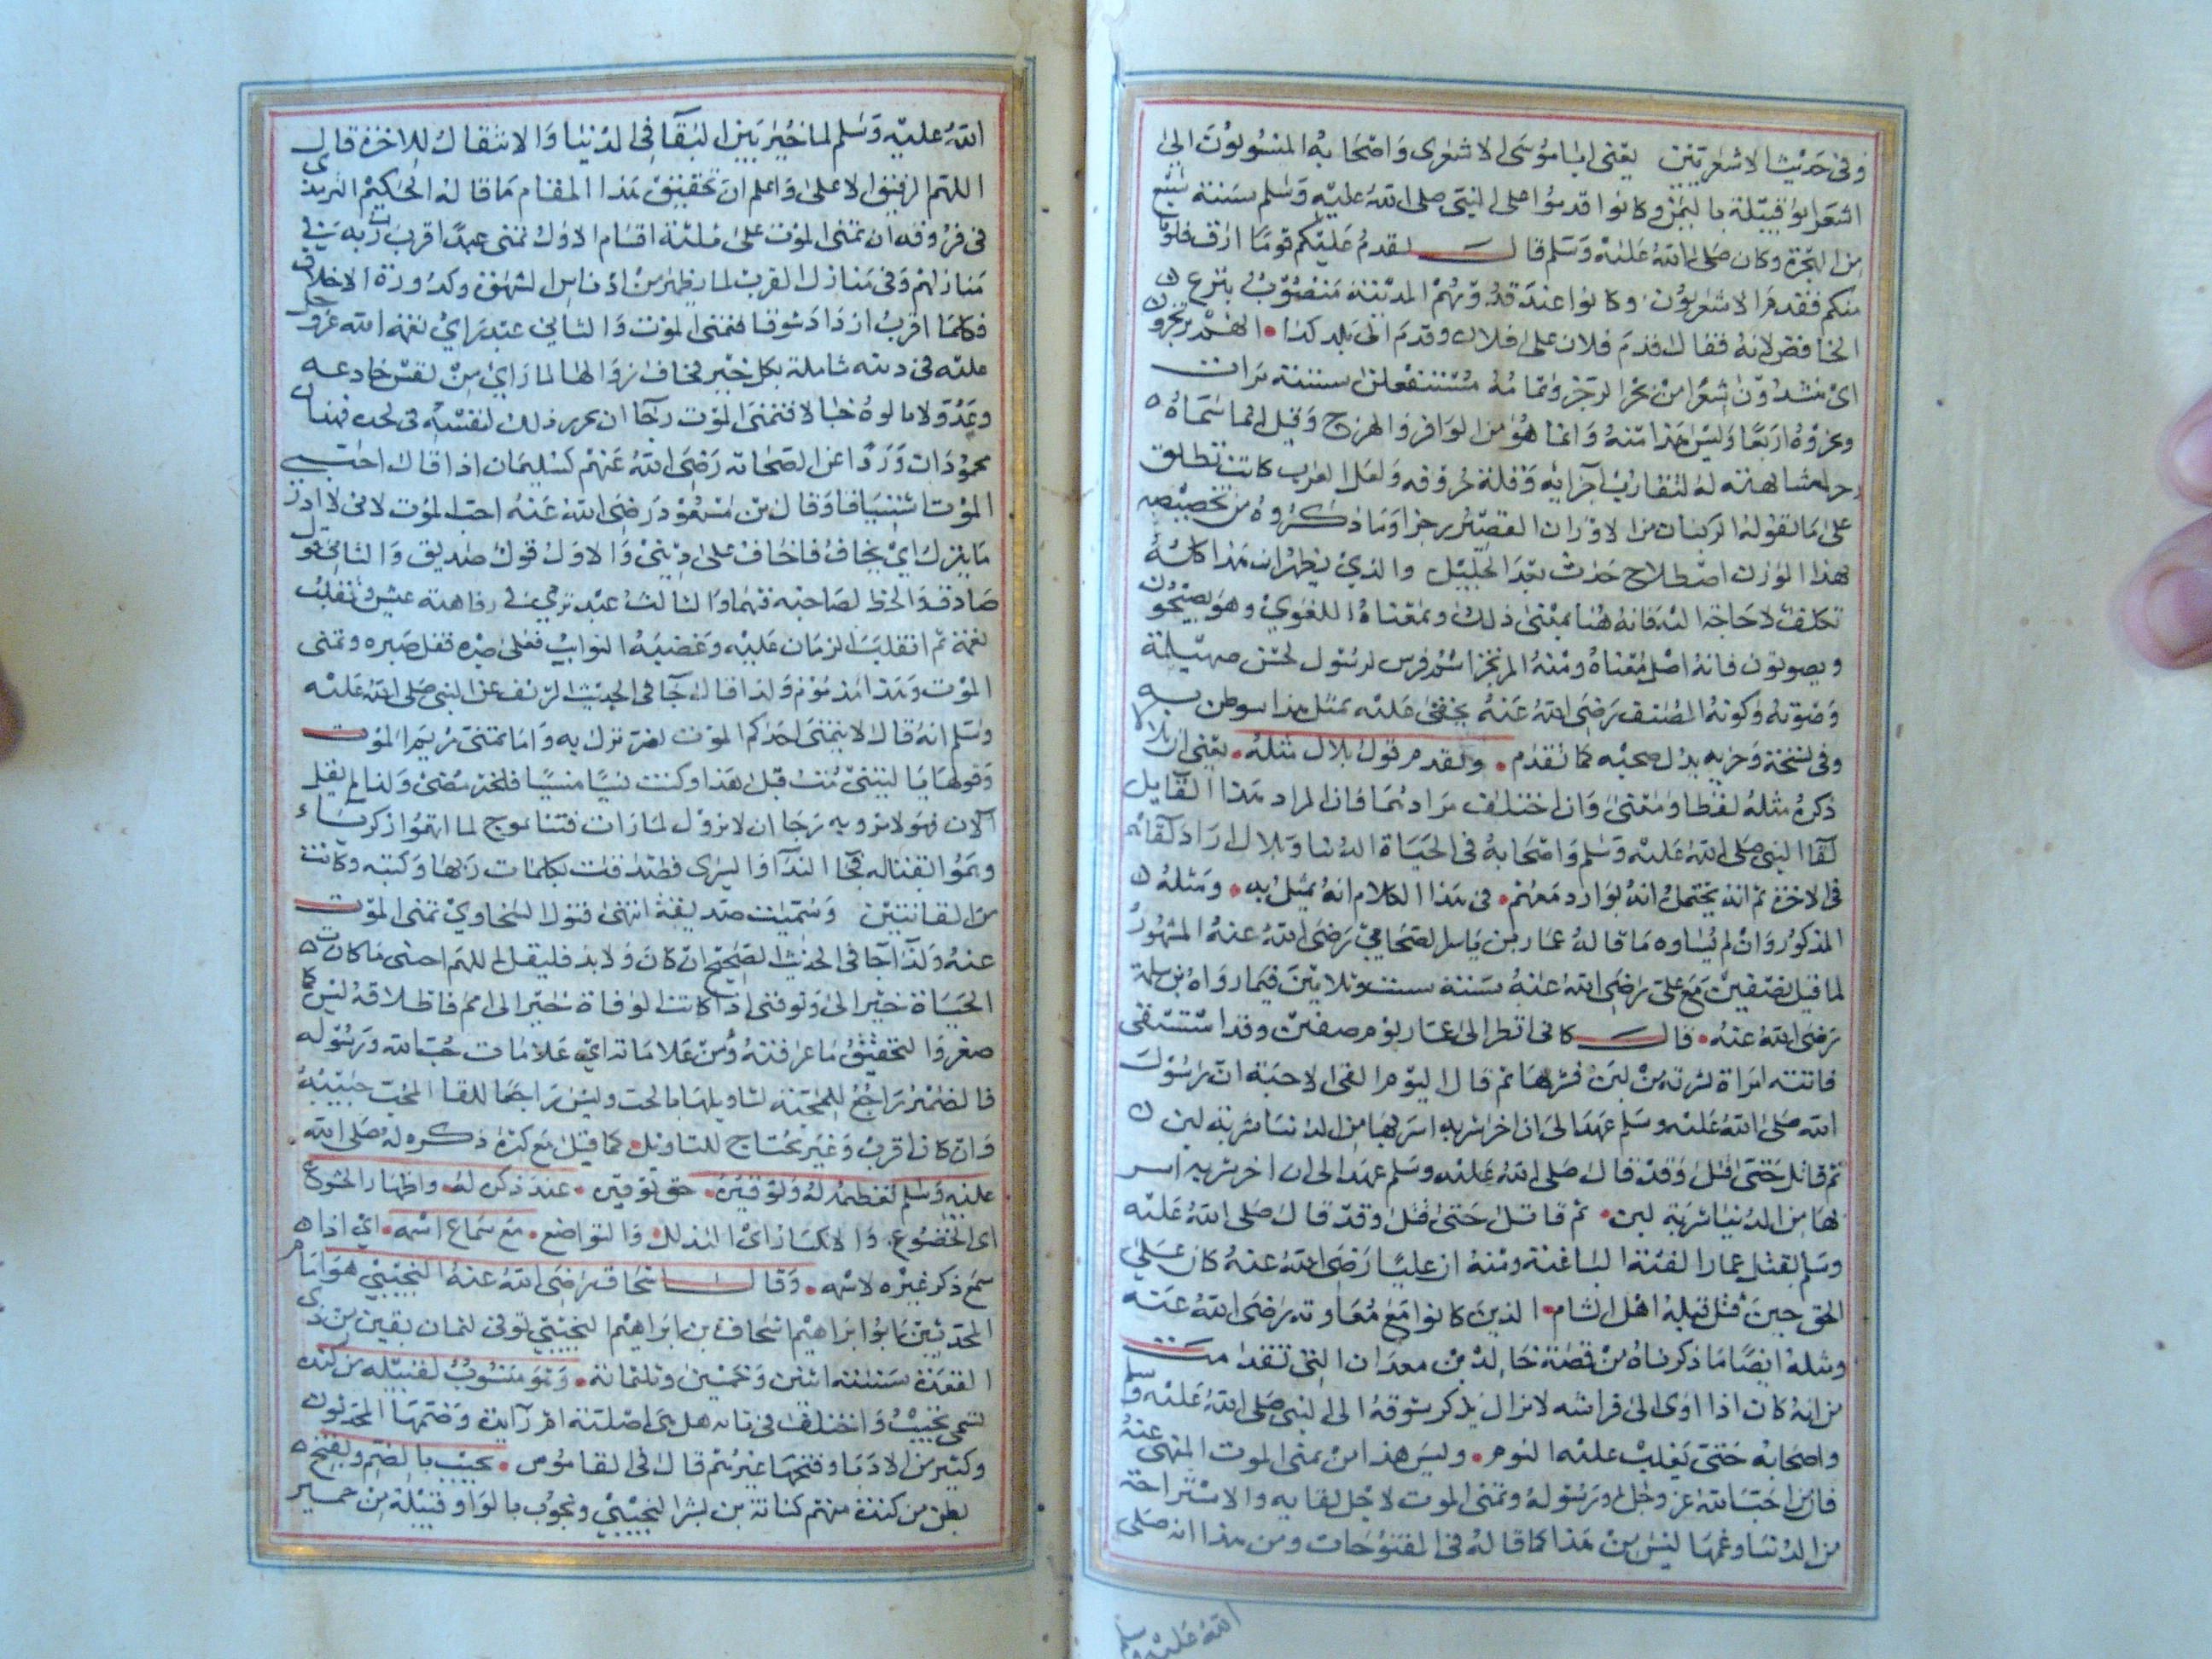 وفى حديث الاشعريين يعنى ابا موسى الاشعرى واصحابه المنسوبون الى
اشعر ابو قبيلة باليمن وكانوا قدموا على النبى صلى الله عليه وسلم سنة سبع
من الهجرة وكان صلى الله عليه وسلم قال يقدم عليكم قوما ارق قلوبا
منكم فقدم الاشعريون وكانوا عند قدومهم المدينة منصوب بنزع
الخافض لانه فقال قدم فلان على فلان وقدم الى بلد كذا انهم يرتجزون
اى ينشدون شعرا من بحر الرجز وتمامه مستفعلن ستة مرات
وعزوه اربعا وليس هذا منه وانما هو من الوافر والهزج وقيل انما سماه
رجزا لمشابهته له لتقارب اجزايه وقلة حروفه ولعل العرب كانت تطلق
على ما تقوله الركبان من الاوزان القصير رجزا وما ذكروه من تخصيصه
بهذا الوزن اصطلاح حدث بعد الخليل والذى يظهر ان هذا كله
تكلف لا حاجة اليه فانه هنا بمعنى ذلك ومعناه اللغوي وهو يصيحون
ويصوتون فانه اصل معناه ومنه المرتجز اسم فرس لرسول لحسن صهيله
وصوته وكونه المصنف رضى الله عنه يخفى عليه مثل هذا سوظن به
وفى نسخة وحزبه بدل صحبه كما تقدم وتقدم قول بلال مثله يعنى ان بلالا
ذكره مثله لفظا ومعنى وان اختلف مرادهما فان المراد هذا القايل
لقا النبى صلى الله عليه وسلم واصحابه فى الحياة الدنيا وبلال اراد لقاهم
فى الاخرة ثم انه يحتمل انه توارد معهم فى هذا الكلام انه تمثل به ومثله
المذكور وان لم يساوه ما قاله عمار بن ياسر الصحابي رضى الله عنه المشهور
لما قيل بصفين مع على رضى الله عنه سنة ست وثلاثين فيما رواه بن سلمة
رضى الله عنه قال كانى انظر الى عمار يوم صفين وقد استسقى
فاتته امراة بشربة من لبن فشربها ثم قال اليوم القى الاحبه ان رسول
الله صلى الله عليه وسلم عهد الى ان اخر شربة اشربها من الدنيا شربة لبن
ثم قاتل حتى قتل وقد قال صلى الله عليه وسلم عهد الى ان اخر شربة اشر
بها من الدنيا شربة لبن ثم قاتل حتى قتل وقد قال صلى الله عليه
وسلم تقتل عمارا الفئة الباغية ومنه ان عليا رضى الله عنه كان على
الحق حين قتل قتله اهل الشام الذين كانوا مع معاوية رضى الله عنه
ومثله ايضا ما ذكرناه من قصة خالد بن معدان التى تقدمت
من انه كان اذا اوى الى فراشه لا يزال يذكر شوقه الى النبى صلى الله عليه وسلم
واصحابه حتى يغلب عليه النوم وليس هذا من تمنى الموت المنهى عنه
فان من احب الله عز وجل ورسوله وتمنى الموت لاجل لقايه والاستراحة
من الدنيا وغمها ليس من هذا كما قاله فى الفتوحات ومن هذا انه صلى
الله عليه وسلم
الله عليه وسلم لما خير بين البقا فى الدنيا والانتقال للاخرة قال
اللهم الرفيق الاعلى واعلم ان تحقيق هذا المقام ما قاله الحكيم الترمذى
فى فروقه ان تمنى الموت على ثلثة اقسام الاول تمنى عبد اقرب ربه فى
منازلهم وفى منازل القرب لما يظهر من ادناس الشهوة وكدورة الاخلاق
فكلما اقرب ازداد شوقا فتمنى الموت والثاني عبد راي نعمة الله عز وجل
عليه فى دينه شاملة بكل خير فخاف زوالها لما راي من نفس خادعة
وعدو لا مالوه خبالا فتمنى الموت رجا ان يحرز ذلك لنفسه فى لحده فهذان
محمودان وردا عن الصحابه رضى الله عنهم كسليمان اذا قال احب
الموت اشتياقا وقال بن مسعود رضى الله عنه احب الموت لانى لا ادرى
ما ينزل اي يخاف فاخاف على دينى والاول قول صديق والثانى قول
صادق والحظ لصاحبه فيهما والثالث عبد ترجى فى رفاهية عيش وتقلب
نعمة ثم انقلب الزمان عليه وغضبه النوايب فعلى صدره فقل صبره وتمنى
الموت وهذا مذموم ولذا قال جا فى الحديث الشريف عن النبى صلى الله عليه
وسلم انه قال لا يتمنى احدكم الموت لضر نزل به واما تمنى مريم الموت
وقولها يا ليتنى مت قبل هذا وكنت نسيا منسيا فلخير مضى ولذا لم يقل
الان فهو لا نزو به رجا ان لا نزول لمازات فتنا موج لما اتهموا زكرياء
وهموا بقتاله فجا الندآ والبشرى فصدقت بكلمات ربها وكتبه وكانت
من القانتين وسميت صديقة انتهى فقول السخاوي تمنى الموت
عنه ولذا جا فى الحديث الصحيح ان كان ولا بد فليقل اللهم احينى ما كان
الحياة خيرا لى وتوفنى اذا كانت الوفاة خيرا لى مم فاطلاقه ليس كما
صغروا لتحقيق ما عرفته ومن علاماته اي علامات حب الله ورسوله
فالضمير راجع للمحبة لتاويلها بالحب وليس راجعا للقا المحب حبيبه
وان كان اقرب وغير محتاج للتاويل كما قيل مع كثرة ذكره له صلى الله
عليه وسلم تعظيمه له وتوقيره حق توقيره عند ذكره له واظهار الخشوع
اى الخضوع والانكسار اى التذلل والتواضع مع سماع اسمه اي اذا
سمع ذكر غيره لاسمه وقال اسحاق رضى الله عنه التجيبي هو امام
المحدثين ابو ابراهيم اسحاق بن ابراهيم التجيبى توفى لثمان بقين من ذى
القعدة سنة اثنين وخمسين وثلثمائة وهو منسوب لقبيله من كنده
تسمى تجيب واختلف فى تائه هل هى اصلية ام زايدة وضمها المحدثون
وكثير من الادبا وفتحها غيرهم قال فى القاموس تجيب بالضم وبفتح
بطن من كندة منهم كنانة بن بشر التجيبي وتجوب بالواو قبيلة من حمير